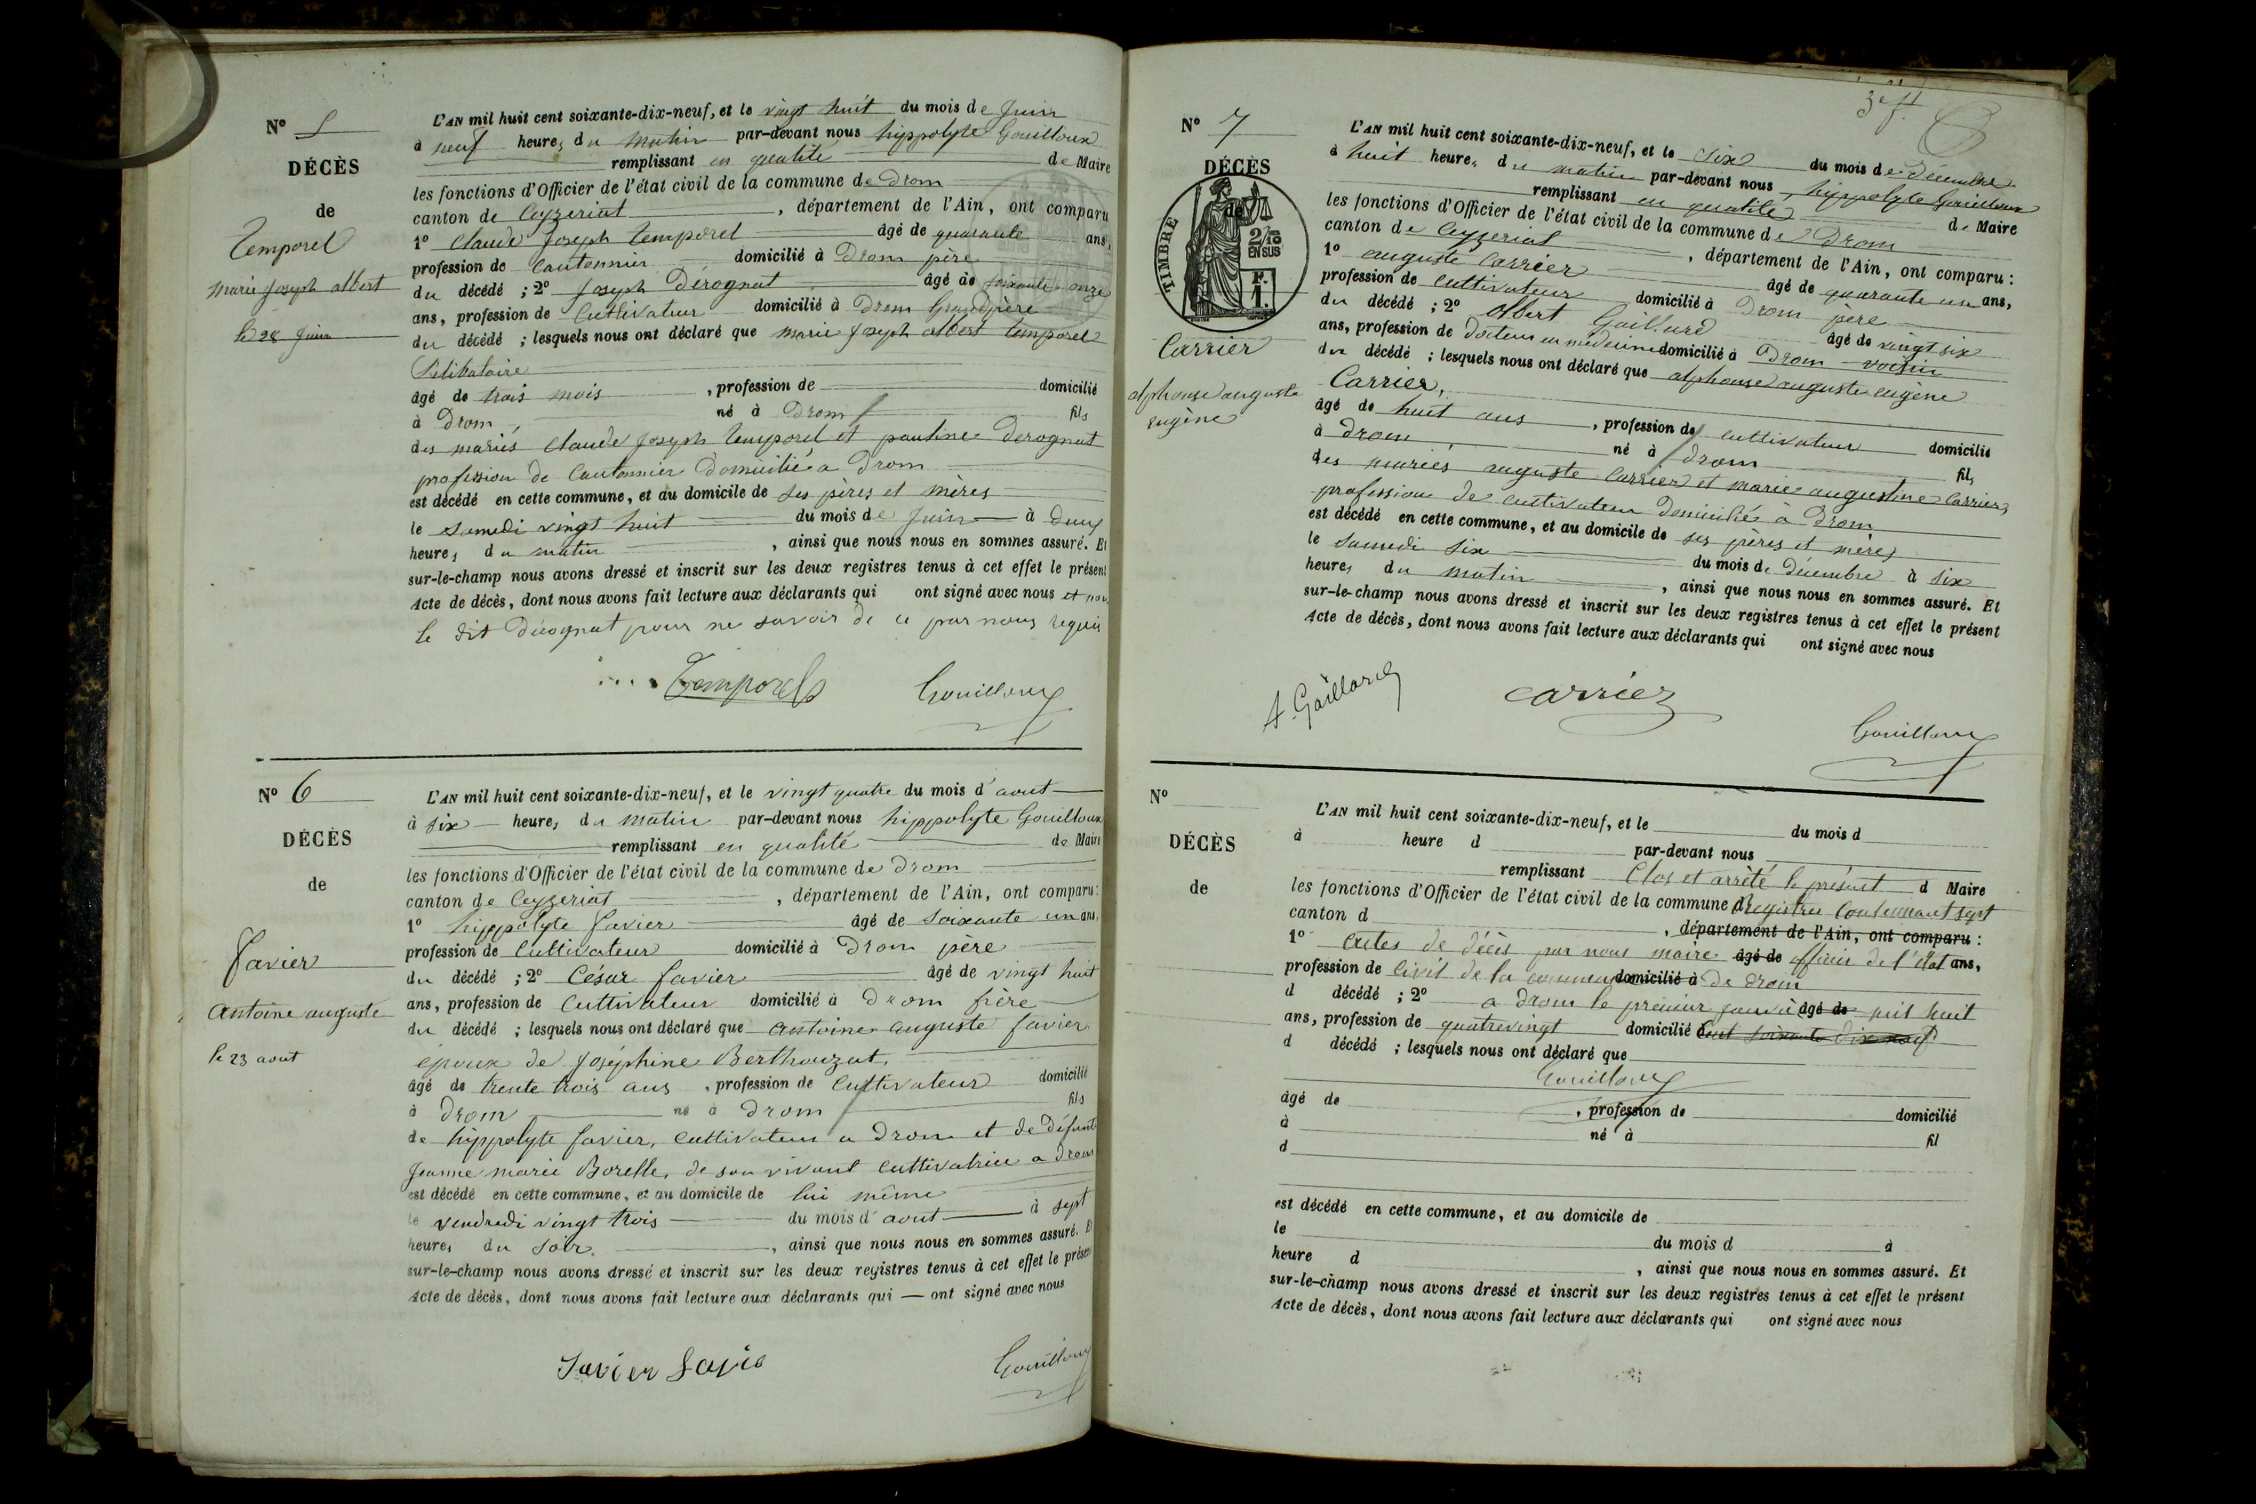 N° 5
DÉCÈS
de
Temporel
marie Joseph albert
le 28 Juin
L'AN mil huit cent soixante-dix-neuf, et le vingt huit du mois de Juin
à neuf heures du matin par-devant nous hippolyte Gouilloux
remplissant en qualité de Maire
les fonctions d'Officier de l'état civil de la commune de Drom
canton de Ceyzeriat, département de l'Ain, ont comparu
1° Claude Joseph Temporel âgé de quarante ans,
profession de Cantonnier domicilié à Drom père
du décédé ; 2° Joseph Dérognat âgé de soixante onze
ans, profession de Cultivateur domicilié à Drom Grand père
du décédé ; lesquels nous ont déclaré que marie Joseph albert temporel
Célibataire
âgé de trois mois, profession de domicilié
à Drom né à Drom fils
des mariés Claude Joseph Temporel et pauline Derognat
profession de Cantonnier Domicilié a Drom
est décédé en cette commune, et au domicile de ses pères et mères
le samedi vingt huit du mois de Juin à deux
heures du matin, ainsi que nous nous en sommes assuré. Et
sur-le-champ nous avons dressé et inscrit sur les deux registres tenus à cet effet le présent
Acte de décès, dont nous avons fait lecture aux déclarants qui ont signé avec nous et non
le dit Dérognat pour ne savoir de ce par nous requis
Temporel Gouilloux
N° 6
DÉCÈS
de
Favier
Antoine auguste
le 23 aout
L'AN mil huit cent soixante-dix-neuf, et le vingt quatre du mois d'aout
à six heures du matin par-devant nous hippolyte Gouilloux
remplissant en qualité de Maire
les fonctions d'Officier de l'état civil de la commune de Drom
canton de Ceyzeriat, département de l'Ain, ont comparu :
1° hippolyte Favier âgé de soixante un ans,
profession de Cultivateur domicilié à Drom père
du décédé ; 2° César Favier âgé de vingt huit
ans, profession de Cultivateur domicilié à Drom frère
du décédé ; lesquels nous ont déclaré que Antoine auguste Favier
époux de Joséphine Berthouzat
âgé de trente trois ans, profession de Cultivateur domicilié
à Drom né à Drom fils
de hippolyte Favier, Cultivateur a Drom et de Défunte
Jeanne marie Borelle, de son vivant Cultivatrice a Drom
est décédé en cette commune, et au domicile de lui même
le vendredi vingt trois du mois d'aout à sept
heures du soir, ainsi que nous nous en sommes assuré. Et
sur-le-champ nous avons dressé et inscrit sur les deux registres tenus à cet effet le présent
Acte de décès, dont nous avons fait lecture aux déclarants qui — ont signé avec nous
Favier Gouilloux
3e f.
N° 7
DÉCÈS
de
TIMBRE
2/10
EN SUS
F.
1.
Carrier
alphonse auguste
eugène
L'AN mil huit cent soixante-dix-neuf, et le six du mois de décembre
à huit heures du matin par-devant nous, hippolyte Gouilloux
remplissant en qualité de Maire
les fonctions d'Officier de l'état civil de la commune de Drom
canton de Ceyzeriat, département de l'Ain, ont comparu :
1° auguste Carrier âgé de quarante un ans,
profession de cultivateur domicilié à Drom père
du décédé ; 2° Albert Gaillard âgé de vingt six
ans, profession de docteur en medecine domicilié à Drom voisin
du décédé ; lesquels nous ont déclaré que alphonse auguste eugène
Carrier,
âgé de huit ans, profession de cultivateur domicilié
à drom né à drom fils
des mariés auguste Carrier et marie augustine Carrier,
profession de cultivateur Domiciliés à Drom
est décédé en cette commune, et au domicile de ses pères et mères
le samedi six du mois de décembre à six
heures du matin, ainsi que nous nous en sommes assuré. Et
sur-le-champ nous avons dressé et inscrit sur les deux registres tenus à cet effet le présent
Acte de décès, dont nous avons fait lecture aux déclarants qui ont signé avec nous
A. Gaillard Carrier Gouilloux
N°
DÉCÈS
de
L'AN mil huit cent soixante-dix-neuf, et le du mois d
à heure d par-devant nous
remplissant Clos et arrêté le présent d Maire
les fonctions d'Officier de l'état civil de la commune d registre Contennant sept
canton d, département de l'Ain, ont comparu :
1° actes de décès par nous maire âgé de officier de l'état ans,
profession de civil de la commune domicilié à de drom
d décédé ; 2° a drom le premier janvier âgé de mil huit
ans, profession de quatrevingt domicilié à cent soixante dix neuf
d décédé ; lesquels nous ont déclaré que
Gouilloux
âgé de, profession de domicilié
à né à fil
d
est décédé en cette commune, et au domicile de
le du mois d à
heure d, ainsi que nous nous en sommes assuré. Et
sur-le-champ nous avons dressé et inscrit sur les deux registres tenus à cet effet le présent
Acte de décès, dont nous avons fait lecture aux déclarants qui ont signé avec nous